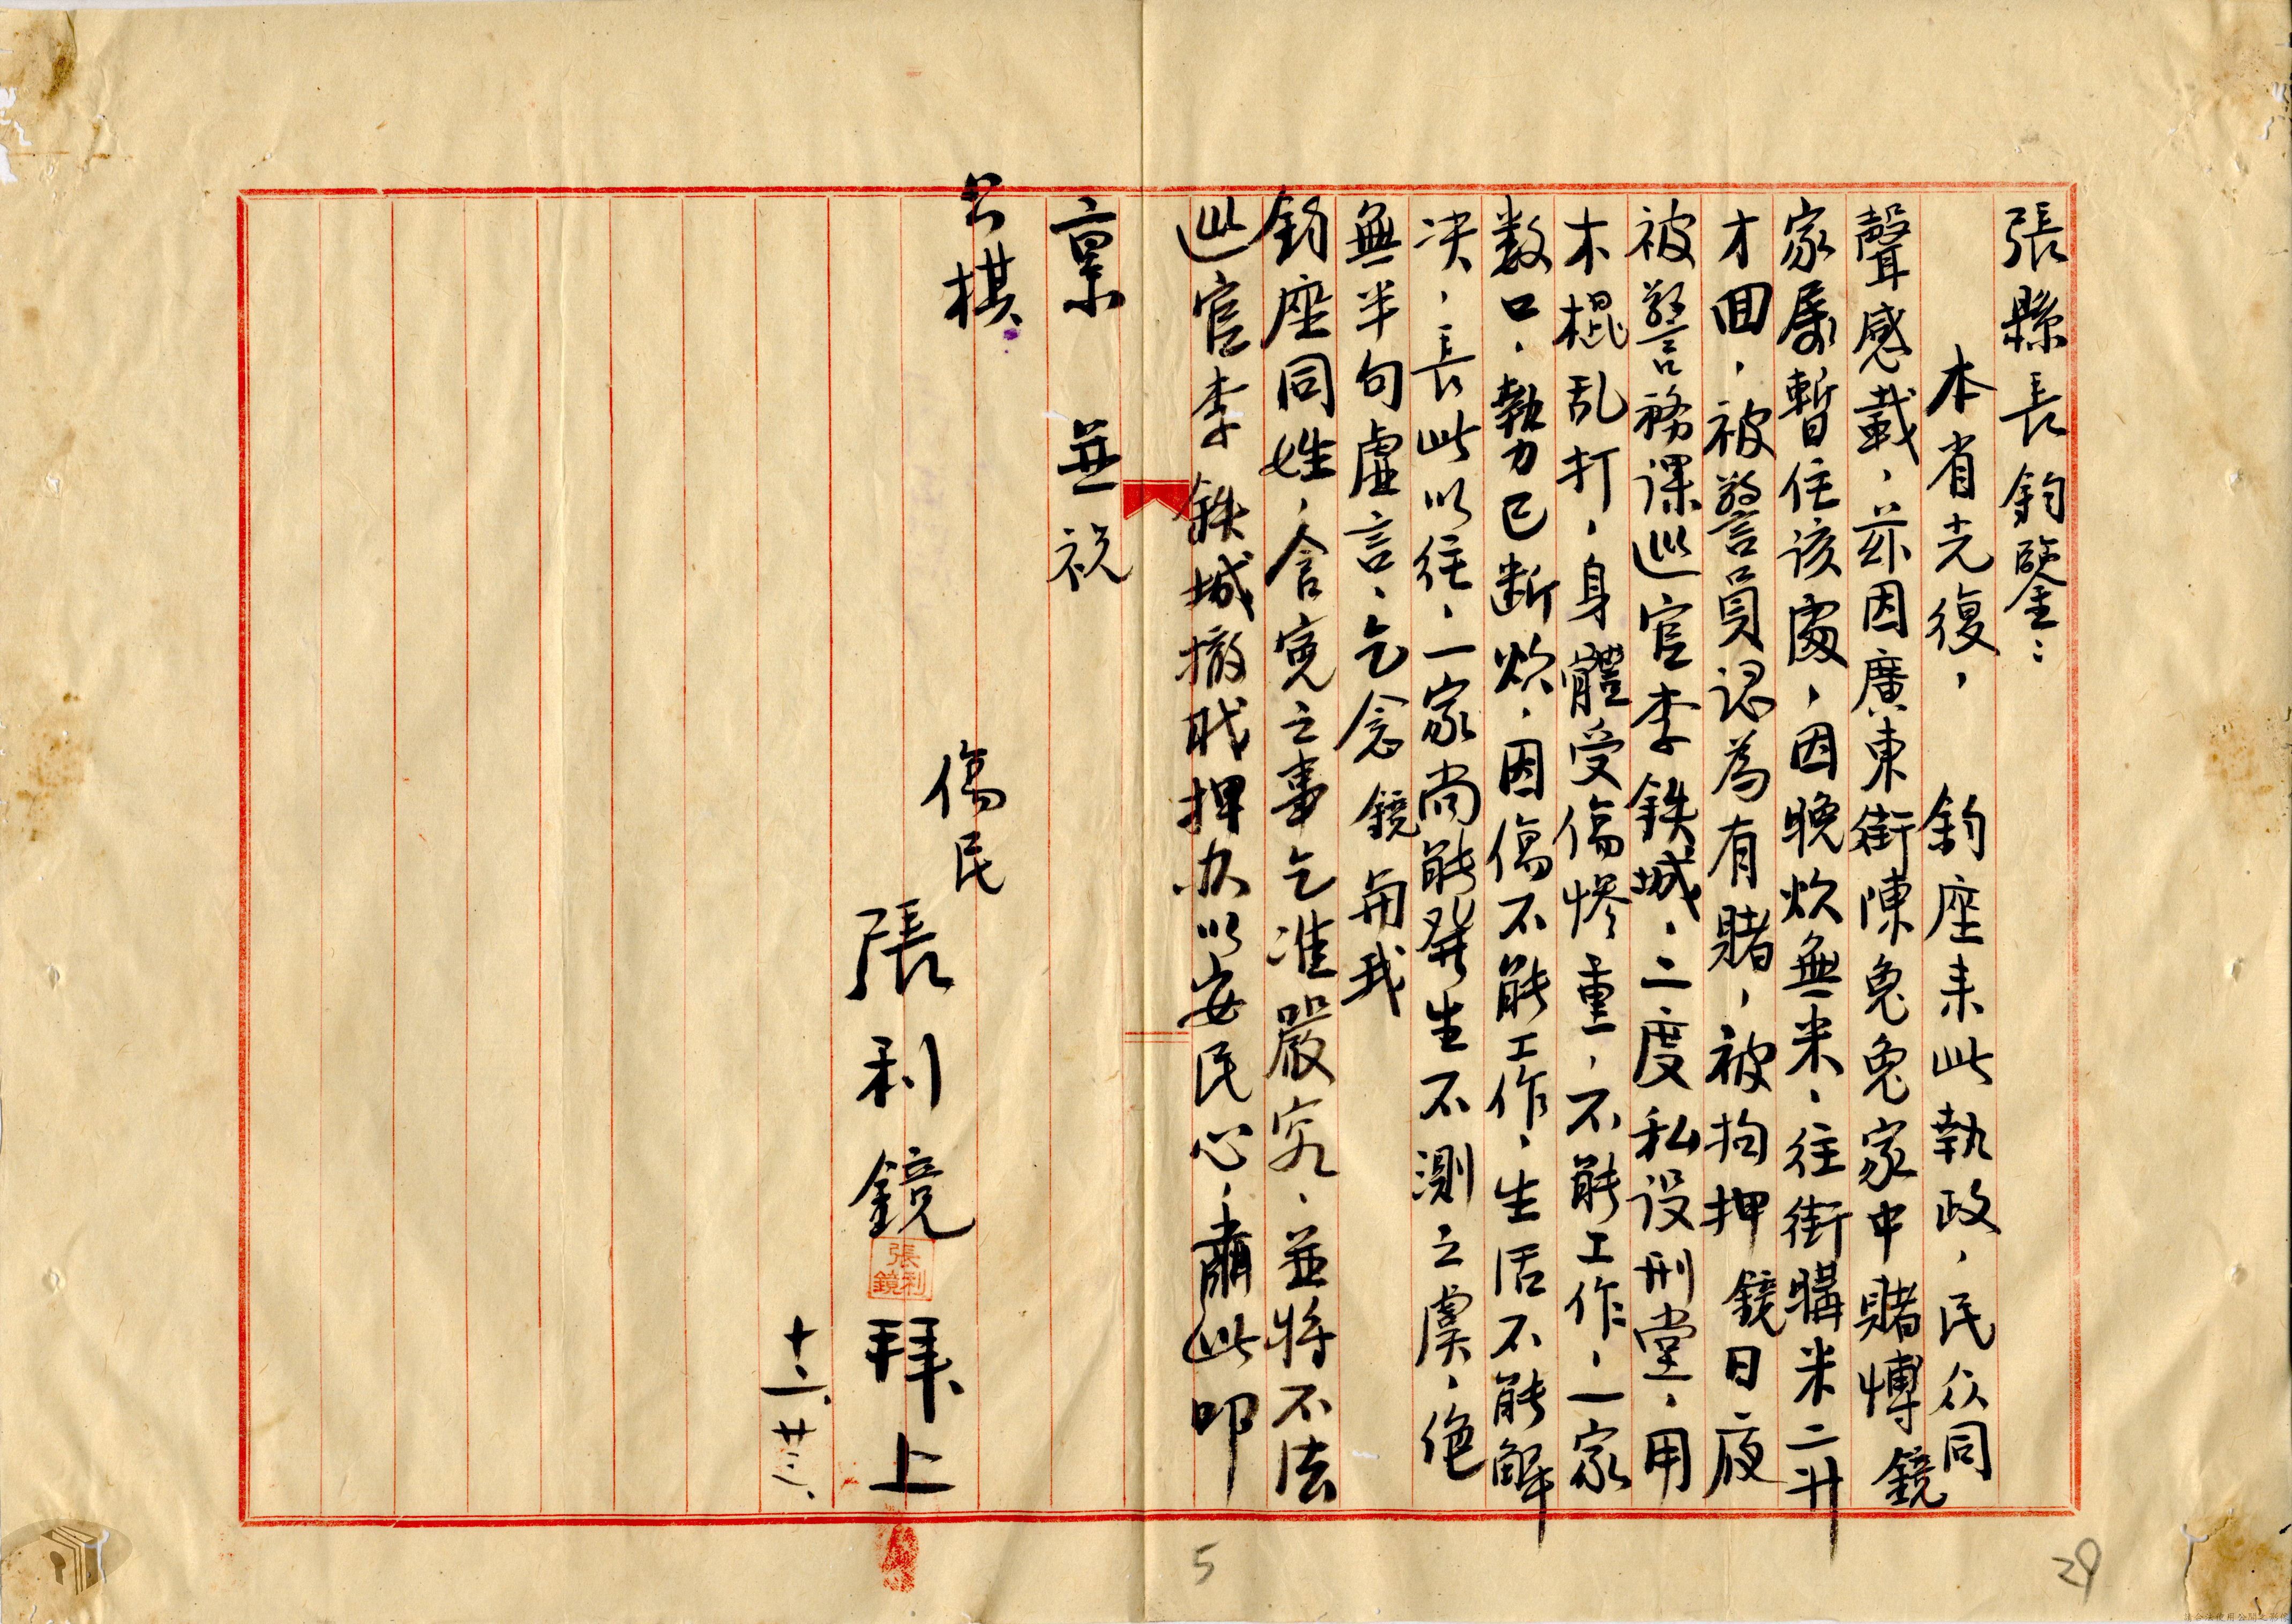 張縣長鈞鑒：
本省光復，　鈞座来此執政，民众同
聲感載，茲因廣東街陳兔兔家中賭愽鏡
家属暫住該處，因晚炊無米、往街購米二升
才囬，被警員认為有賭，被拘押鏡日夜
被警務课巡官李鉄城、二度私设刑堂、用
木棍乱打，身體受傷慘重，不能工作，一家
数口、勢已断炊、因傷不能工作、生活不能解
决，長此以往、一家尚能發生不測之虞、绝
無半句虛言、乞念鏡與我
鈞座同姓，含冤之事乞准嚴究、並将不法
巡官李鉄城撤职押办以安民心，肅此叩
稟　並祝
公祺
傷民
張利鏡　拜上
張利鏡
十二、廿三、
5
29